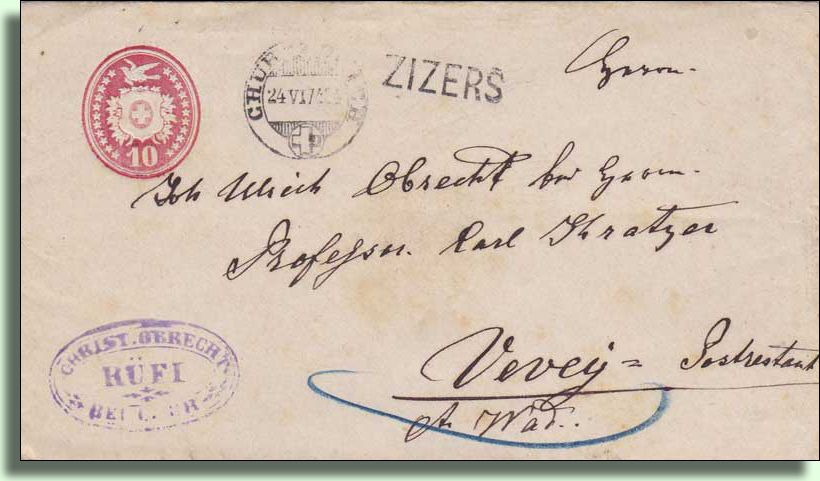 10
CHUR
24 VI 7
ZIZERS
Herrn.
Joh Ulrich Obrecht bei Herrn.
Professor. Karl Kratzer
Vevey = Postrestant
Ct. Wad.
CHRIST. OBRECHT
RÜFI
BEI CHUR